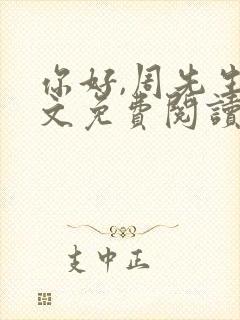 你好,周先生
文免費閱讀
支中正